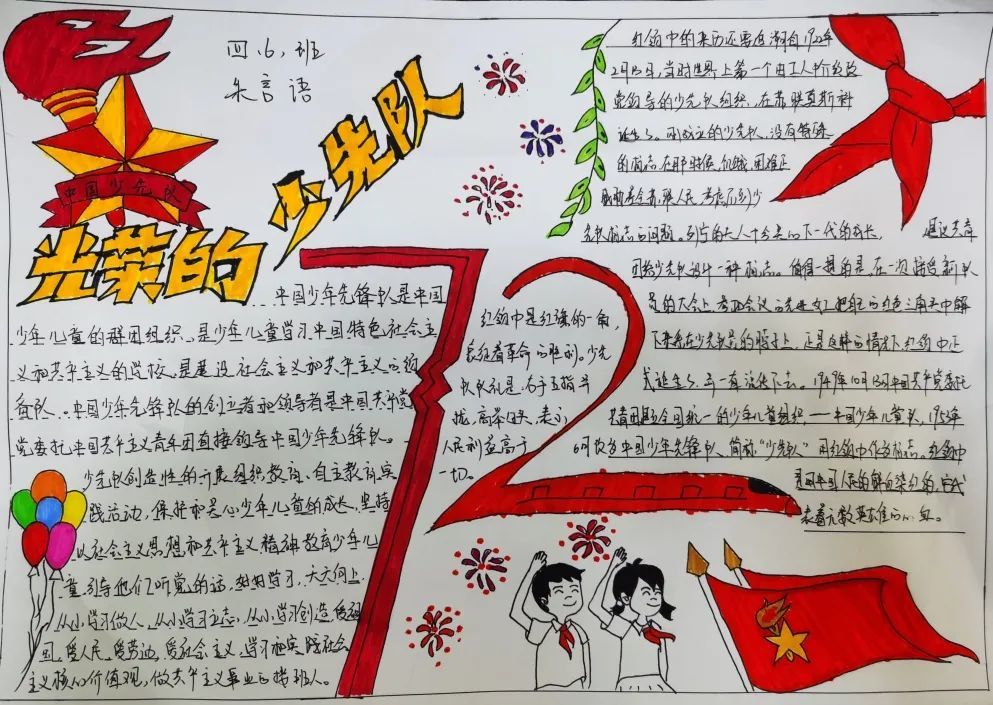 四.6.班
朱言语
中国少先队
光荣的
少先队
72
中国少年先锋队是中国
少年儿童的群团组织、是少年儿童学习中国特色社会主
义和共产主义的学校,是建设社会主义和共产主义的预
备队.中国少年先锋队的创立者和领导者是中国共产党
党委托中国共产主义青年团直接领导中国少年先锋队。
少先队创造性的开展组织教育、自主教育实
践活动,保护和关心少年儿童的成长,坚持
以社会主义思想和共产主义精神教育少年儿
童,引导他们听党的话,好好学习、天天向上
从小学习做人、从小学习立志、从小学习创造,爱祖
国,爱人民,爱劳动,爱社会主义,学习和实践社会
主义核心价值观,做共产主义事业的接班人。
红领巾是红旗的一角,
象征着革命的胜利。少先
队队礼是:右手五指并
拢,高举过头,表示
人民利益高于
一切。
红领巾的来历还要追溯自1922年
2月13日,当时世界上第一个由工人阶级政
党领导的少先队组织,在苏联莫斯科
诞生了。刚成立的少先队,没有特殊
的标志,在那时候,饥饿,困难正
苏联人民,
先队标志的问题。下一代的成长,
团给少先队设计一种标志。值得一提的是,在一次接受新队
员的大会上,把自己的红色三角头巾解
下来系在少先队员的脖子上,正是这样的情况下,红领巾正
式诞生了,并一直流传下去。1949年10月13日中国共产党委托
共青团建立全国统一的少年儿童组织——中国少年儿童队,1953年
6月改为中国少年先锋队、简称“少先队”用红领巾作为标志。红领巾
是用中国人民的鲜血染红的,它代
表着无数英雄的心血。